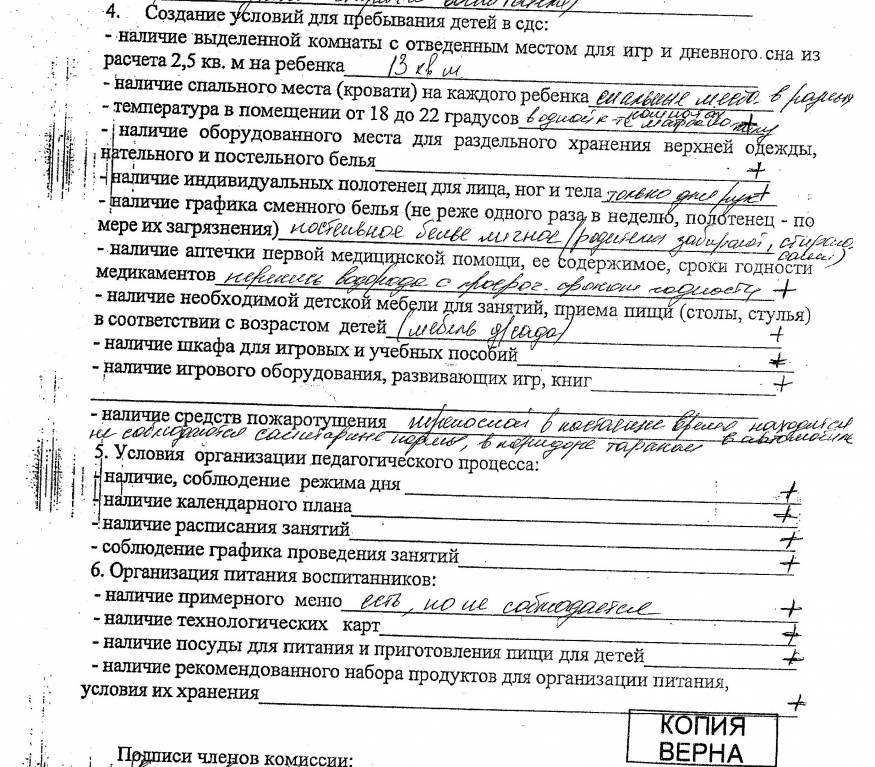 4. Создание условий для пребывания детей в сдс:
- наличие выделенной комнаты с отведенным местом для игр и дневного сна из
расчета 2,5 кв. м на ребенка 13 кв м
- наличие спального места (кровати) на каждого ребенка спальные места в разных
комнатах
- температура в помещении от 18 до 22 градусов в одной к-те
- наличие оборудованного места для раздельного хранения верхней одежды,
нательного и постельного белья +
- наличие индивидуальных полотенец для лица, ног и тела только для рук +
- наличие графика сменного белья (не реже одного раза в неделю, полотенец - по
мере их загрязнения) постельное белье личное (родители забирают, стирают
сами)
- наличие аптечки первой медицинской помощи, ее содержимое, сроки годности
медикаментов перекись водорода с просроч. сроком годности +
- наличие необходимой детской мебели для занятий, приема пищи (столы, стулья)
в соответствии с возрастом детей (мебель д/сада) +
- наличие шкафа для игровых и учебных пособий +
- наличие игрового оборудования, развивающих игр, книг +
- наличие средств пожаротушения переносной в настоящее время находится
не соблюдаются санитарные нормы, в коридоре таракан в автомашине
5. Условия организации педагогического процесса:
- наличие, соблюдение режима дня +
- наличие календарного плана +
- наличие расписания занятий +
- соблюдение графика проведения занятий +
6. Организация питания воспитанников:
- наличие примерного меню есть, но не соблюдается +
- наличие технологических карт +
- наличие посуды для питания и приготовления пищи для детей +
- наличие рекомендованного набора продуктов для организации питания,
условия их хранения +
КОПИЯ
ВЕРНА
Подписи членов комиссии: